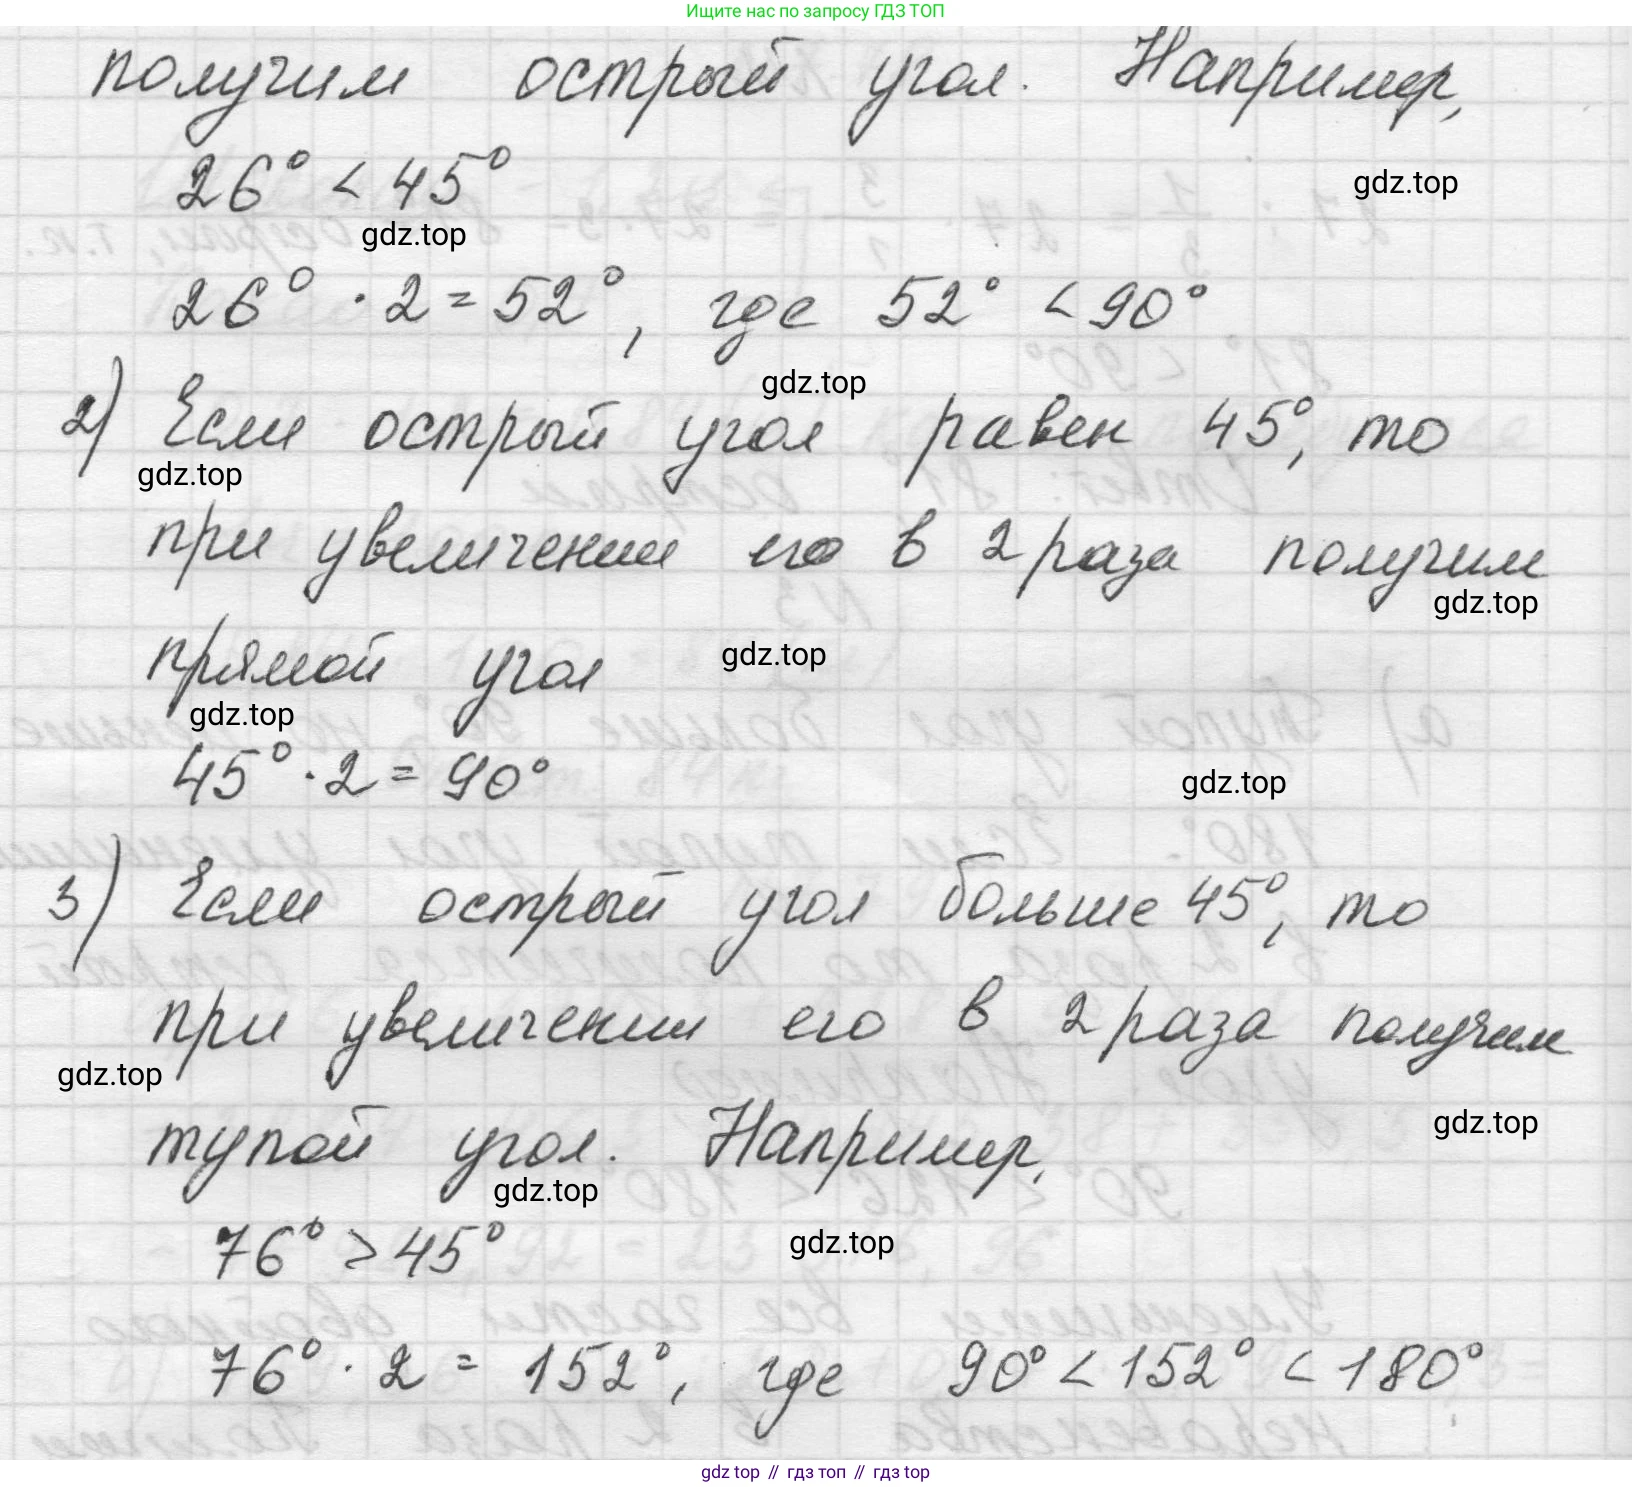 Ищите нас по запросу ГДЗ ТОП
получим острый угол. Например,
26° < 45°
gdz.top
gdz.top
26° · 2 = 52°, где 52° < 90°
gdz.top
2) Если острый угол равен 45°, то
gdz.top
при увеличении его в 2 раза получим
gdz.top
прямой угол
gdz.top
gdz.top
45° · 2 = 90°
gdz.top
3) Если острый угол больше 45°, то
при увеличении его в 2 раза получим
gdz.top
gdz.top
тупой угол. Например,
gdz.top
76° > 45°
gdz.top
76° · 2 = 152°, где 90° < 152° < 180°
gdz top // гдз топ // гдз top